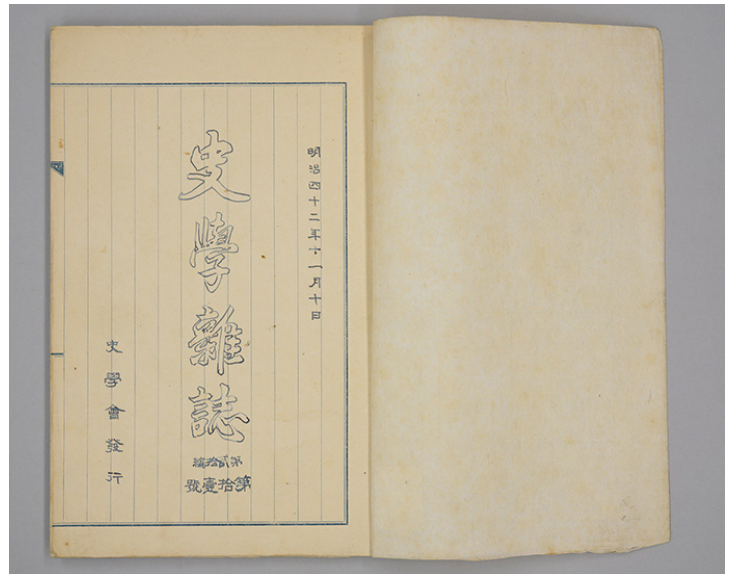 明治四十二年十一月十日
史學雜誌
第貳拾編
第拾壹號
史學會發行